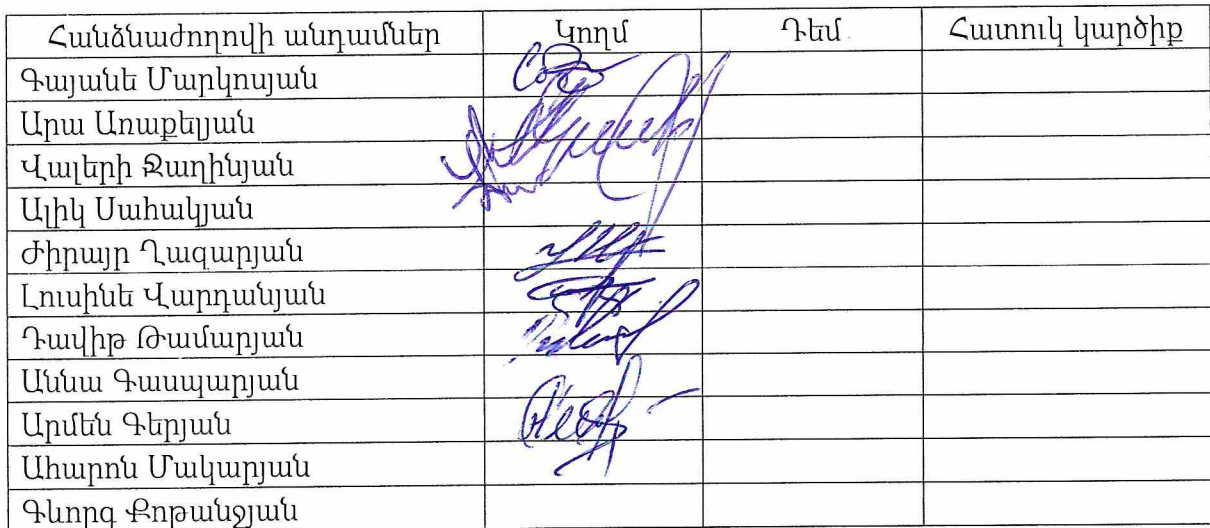 Հանձնաժողովի անդամներ Կողմ Դեմ Հատուկ կարծիք
Գայանե Մարկոսյան
Արա Առաքելյան
Վալերի Ջաղինյան
Ալիկ Սահակյան
Ժիրայր Ղազարյան
Լուսինե Վարդանյան
Դավիթ Թամարյան
Աննա Գասպարյան
Արմեն Գերյան
Ահարոն Մակարյան
Գևորգ Քոթանջյան